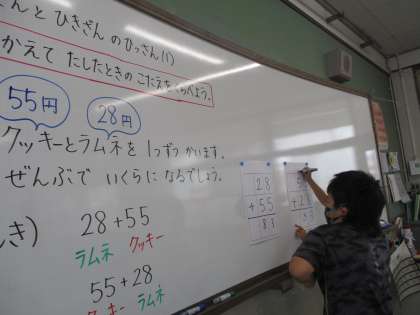 んと ひきざん のひっさん(1)
かえて たしたときの こたえを くらべよう。
55円
28円
クッキーとラムネを 1つずつ かいます。
ぜんぶで いくらになるでしょう。
き)
28+55
ラムネ クッキー
55+28
クッキー ラムネ
28
+55
83